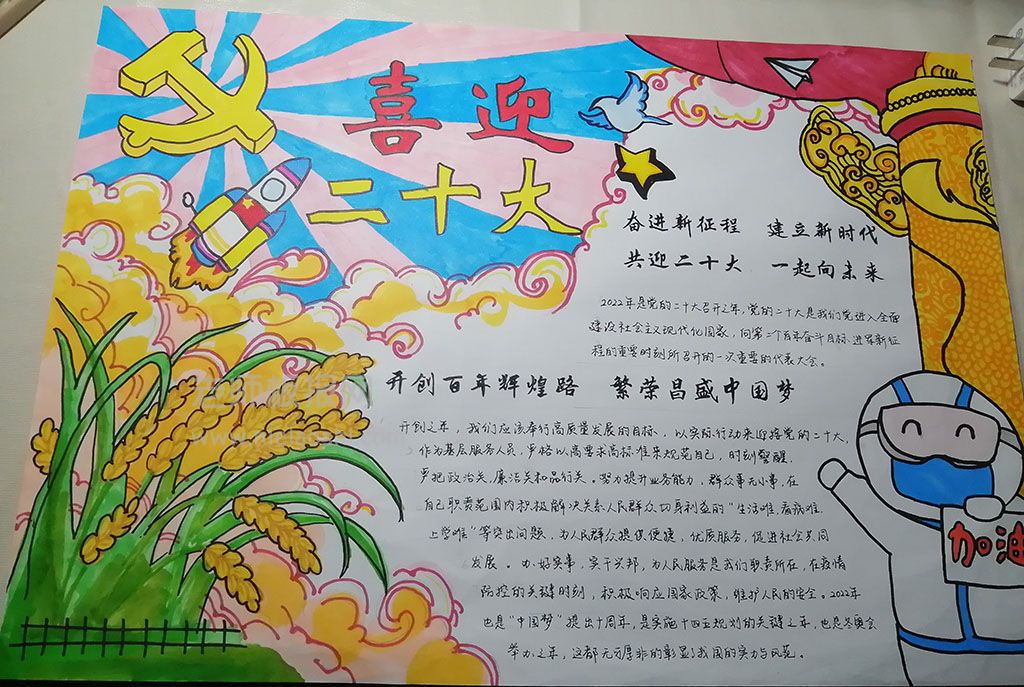 喜迎
二十大
奋进新征程 建立新时代
共迎二十大 一起向未来
2022年是党的二十大召开之年,党的二十大是我们党进入全面
建设社会主义现代化国家,向第二个百年奋斗目标进军新征
程的重要时刻所召开的一次重要的代表大会。
开创百年辉煌路 繁荣昌盛中国梦
开创之年,我们应该奉行高质量发展的目标,以实际行动来迎接党的二十大,
作为基层服务人员,严格以高要求高标准来规范自己,时刻警醒,
严把政治关,廉洁关和品行关。努力提升业务能力,群众事无小事,在
自己职责范围内积极解决关系人民群众切身利益的“生活难,看病难,
上学难”等突出问题,为人民群众提供便捷,优质服务,促进社会共同
发展。办好实事,实干兴邦,为人民服务是我们职责所在,在疫情
防控的关键时刻,积极响应国家政策,维护人民的安全。2022年
也是“中国梦”提出十周年,是实施十四五规划的关键之年,也是冬奥会
举办之年,这都无可厚非的彰显了我国的实力与风范。
加油